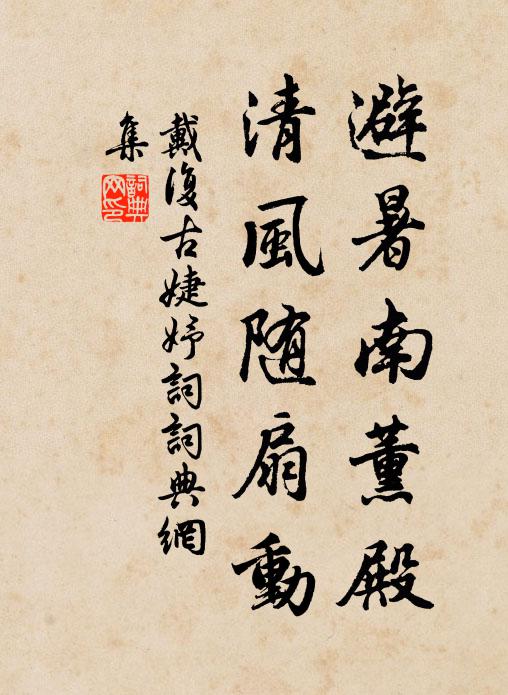 避暑南薰殿
清風随扇動
戴復古婕妤詞詞典網
集
詞典
网印